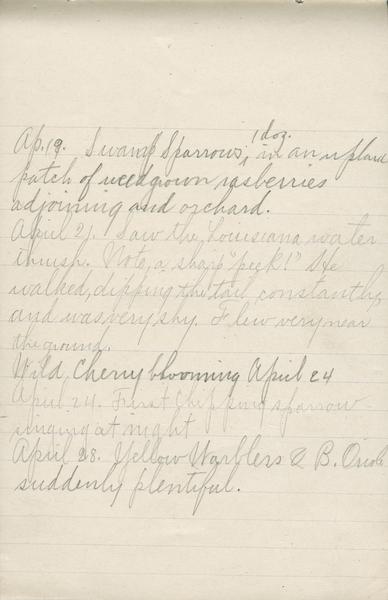 Ap. 19. Swamp Sparrows, 1 doz. in an upland
patch of weedgrown rasberries
adjoining and orchard.
April 21. Saw the Louisiana water
thrush. Note, a sharp "peek!" She
walked, dipping the tail constantly,
and was very shy. Flew very near
the ground.
Wild Cherry blooming April 24
April 24. First Chipping sparrow
singing at night
April 28. Yellow Warblers & B. Oriole
suddenly plentiful.